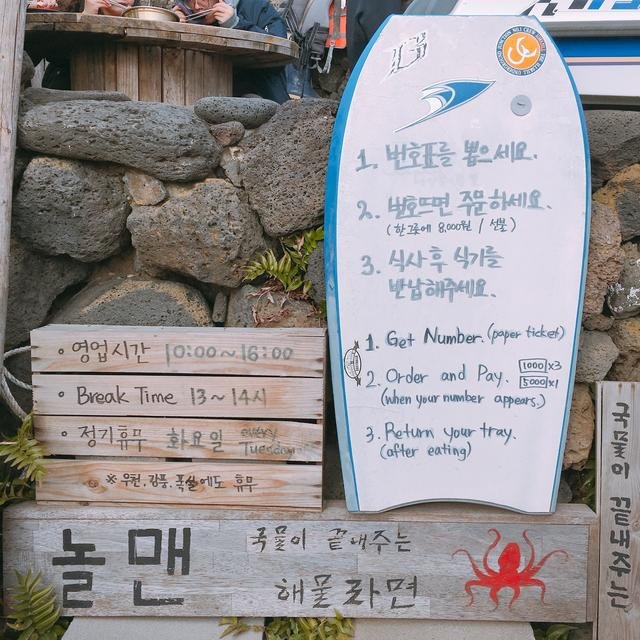 1. 번호표를 뽑으세요.
2. 번호뜨면 주문하세요.
(한그릇에 8,000원 / 선불)
3. 식사 후 식기를
반납해주세요.
1. Get Number. (paper ticket)
2. Order and Pay. 1000 x3
(when your number appears.) 5000 x1
3. Return your tray.
(after eating)
• 영업시간 10:00~16:00
• Break Time 13~14시
• 정기휴무 화요일 every Tuesday
※ 우천, 강풍, 폭설에도 휴무
놀맨
국물이 끝내주는
해물라면
국물이 끝내주는